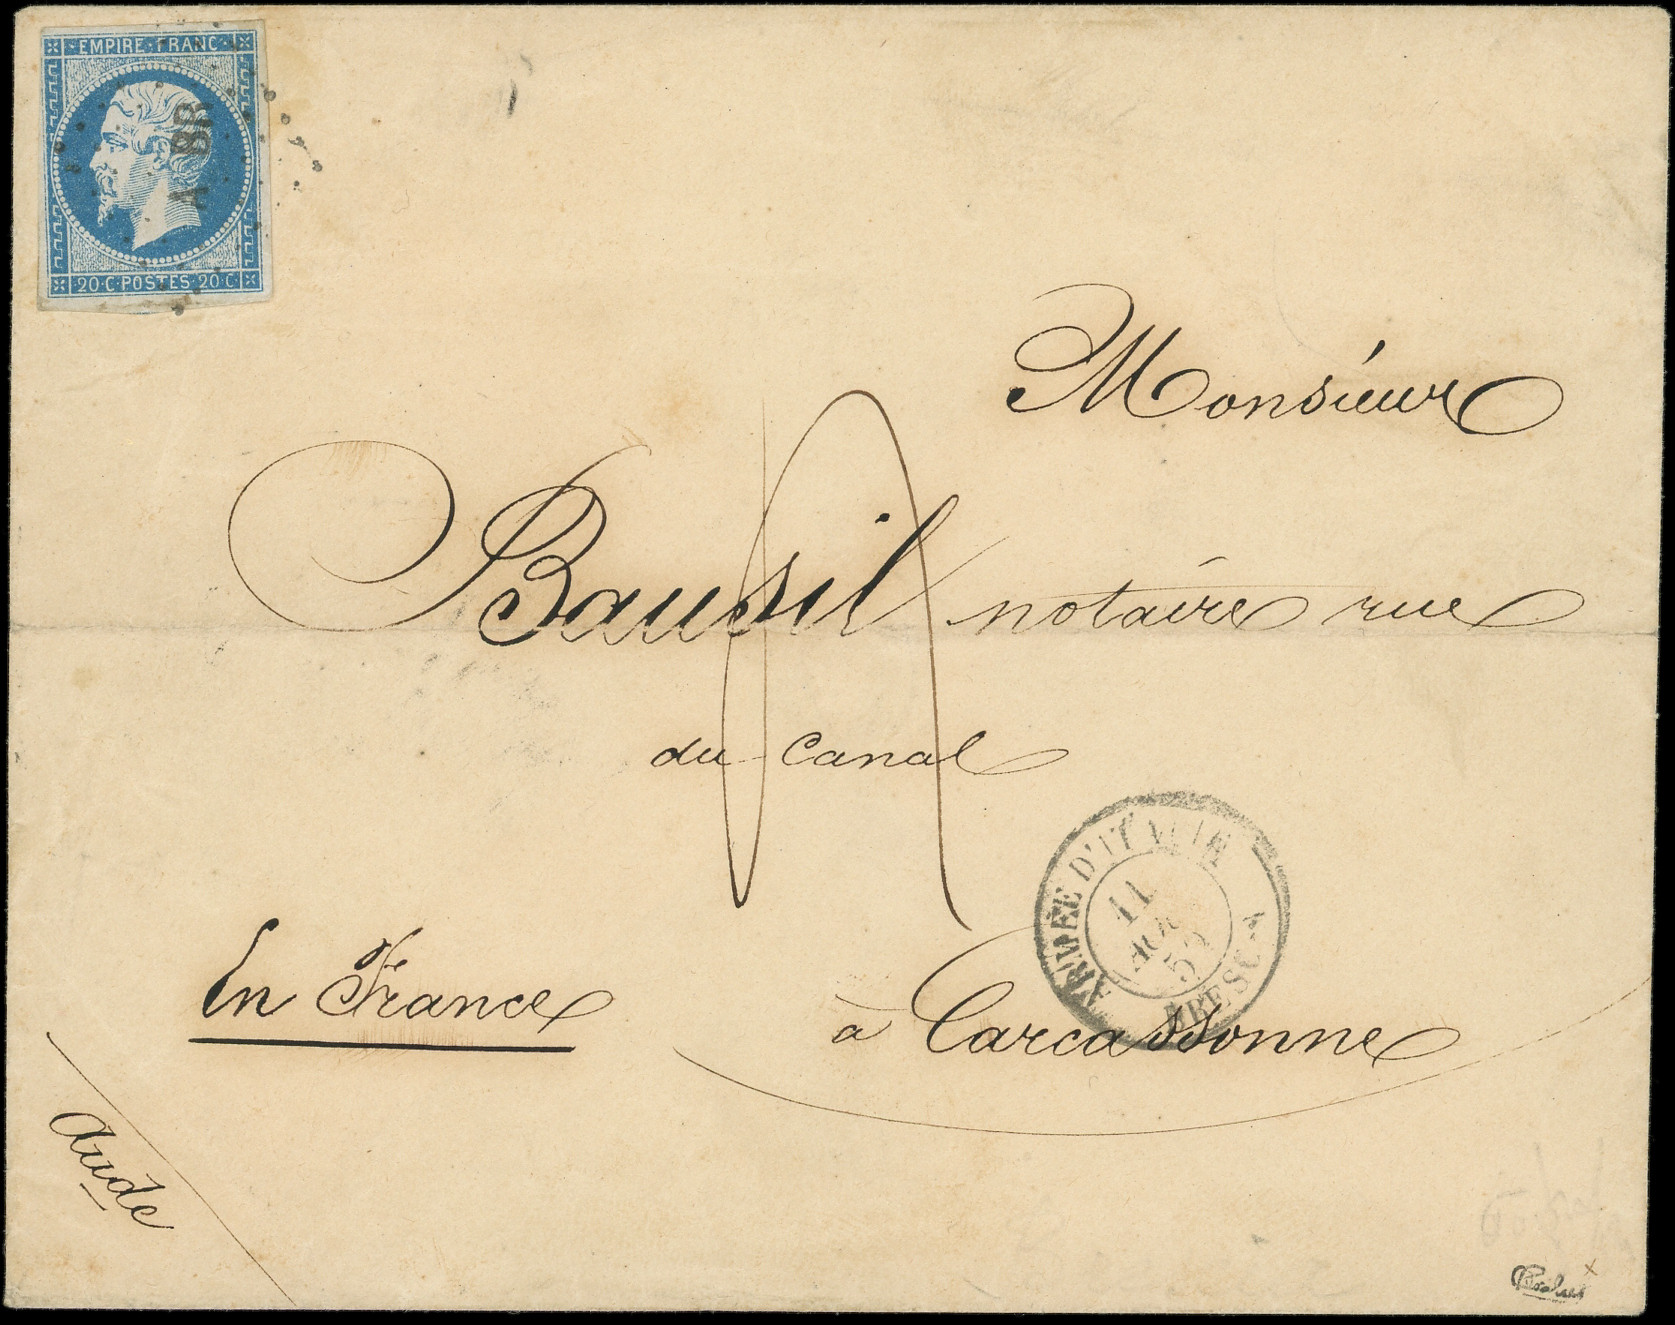 EMPIRE·FRANC·
A BR
20·C·POSTES·20·C
Monsieur
Bausil notaire rue
du Canal
ARMÉE D'ITALIE
11
AOU
59
BRESCIA
En France
à Carcassonne
Aude